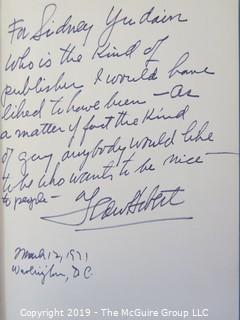 For Sidney Yudain
who is the kind of
publisher I would have
liked to have been — as
a matter of fact the kind
of guy anybody would like
who wants to be nice —
to people —
March 12, 1971
Washington, D.C.
Copyright 2019 - The McGuire Group LLC